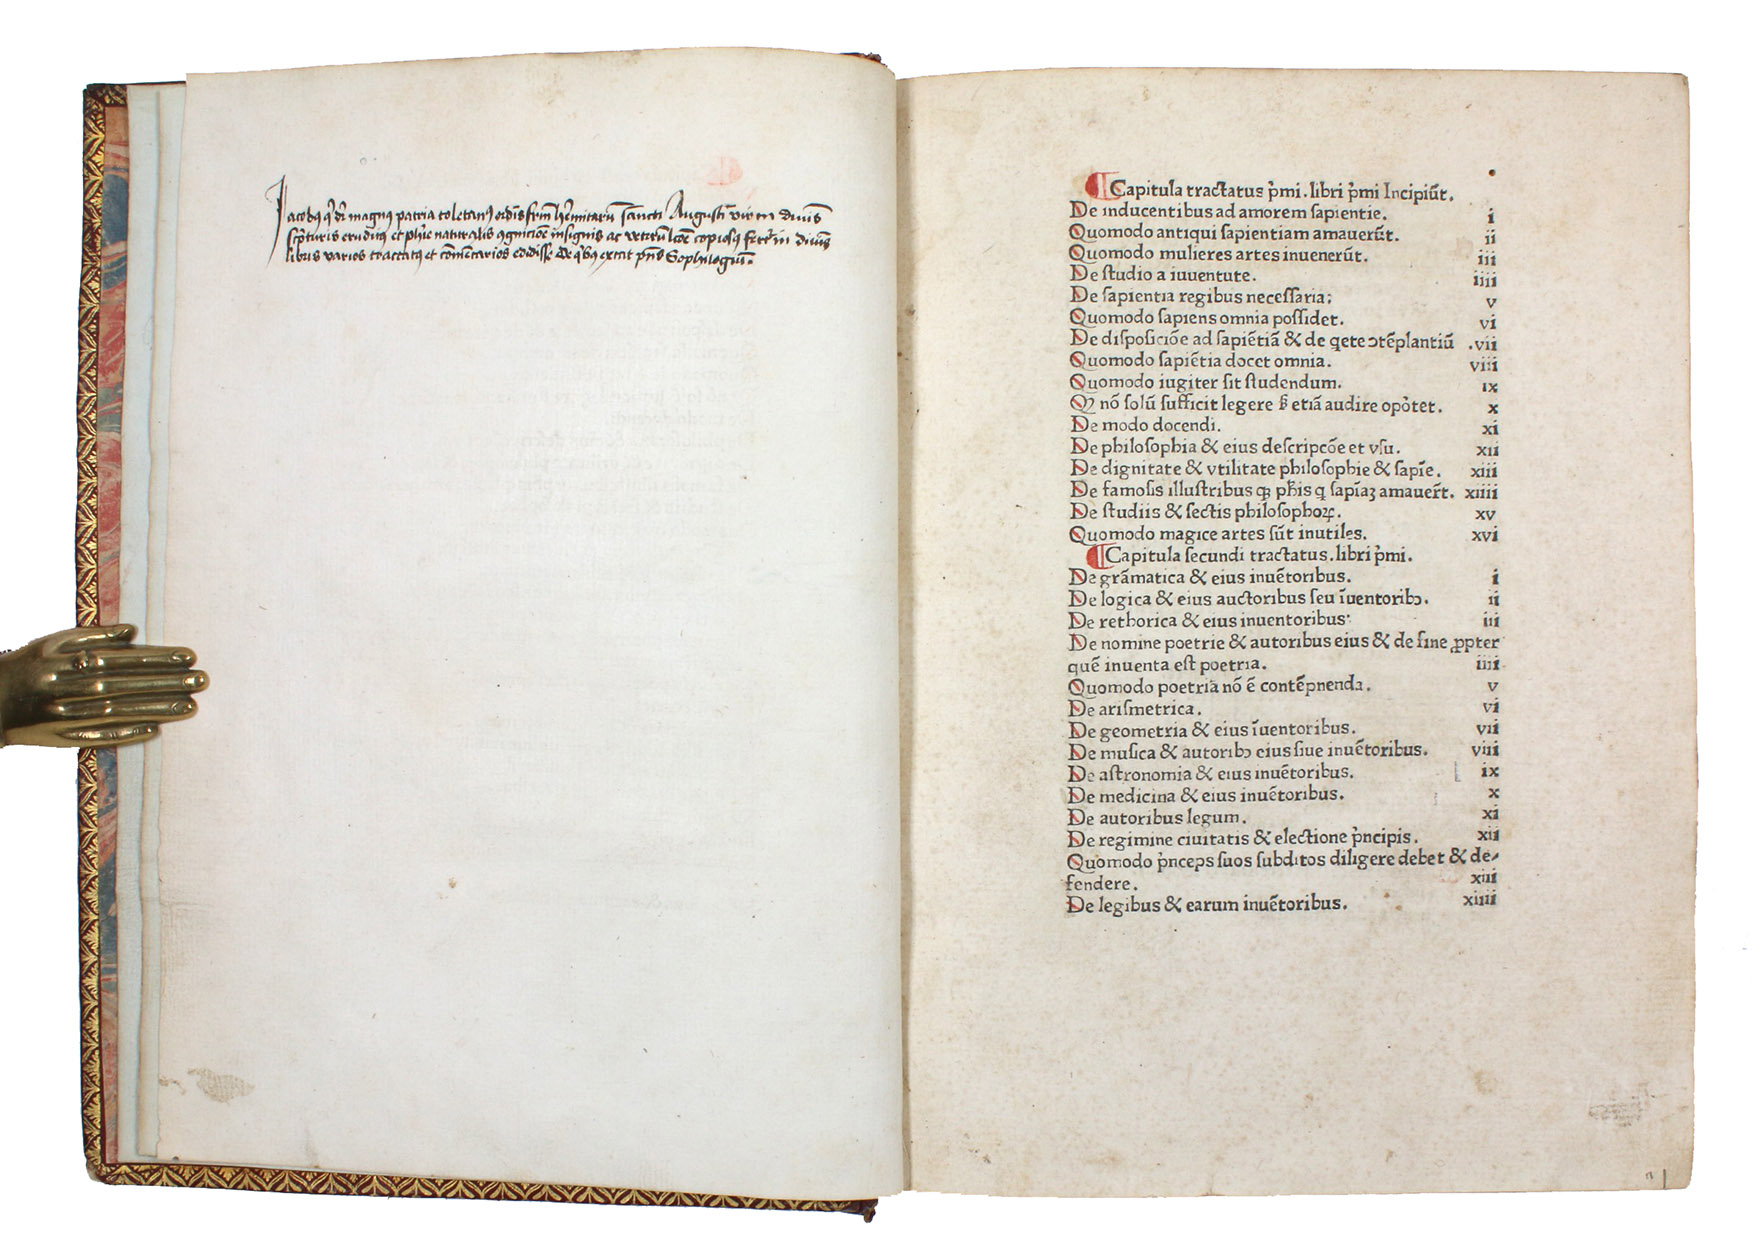 Iacobus qͥ dr̄ magnus patria toletanus ordīs frm̄ hēmitarū sancti Augustī vir in diuīs
scpturis eruditus et phīe naturalis ꝯgnicōe insignis ac veterū lcōe copiosus fert in diuīs
libris varios tractatus et cōmentarios edidisse de qͥbus extat pn̄s Sophilogiū.
¶ Capitula tractatus p̄mi. libri p̄mi Incipiūt.
De inducentibus ad amorem sapientie. i
Quomodo antiqui sapientiam amauerūt. ii
Quomodo mulieres artes inuenerūt. iii
De studio a iuuentute. iiii
De sapientia regibus necessaria; v
Quomodo sapiens omnia possidet. vi
De disposiciōe ad sapiētiā & de qete ↄtēplantiū .vii
Quomodo sapiētia docet omnia. viii
Quomodo iugiter sit studendum. ix
Qꝫ nō solū sufficit legere ſꝫ etiā audire opōtet. x
De modo docendi. xi
De philosophia & eius descripcōe et vsu. xii
De dignitate & vtilitate philosophie & sapīe. xiii
De famosis illustribus qꝫ ph̄is q sapīaꝫ amauer̄t. xiiii
De studiis & sectis philosophoꝝ. xv
Quomodo magice artes sūt inutiles. xvi
¶ Capitula secundi tractatus. libri p̄mi.
De grāmatica & eius inuētoribus. i
De logica & eius auctoribus seu īuentoribꝫ. ii
De rethorica & eius inuentoribus· iii
De nomine poetrie & autoribus eius & de fine ꝓpter
quē inuenta est poetria. iiii
Quomodo poetria nō ē contēpnenda. v
De arismetrica. vi
De geometria & eius īuentoribus. vii
De musica & autoribꝫ eius siue inuētoribus. viii
De astronomia & eius inuētoribus. ix
De medicina & eius inuētoribus. x
De autoribus legum. xi
De regimine ciuitatis & electione p̄ncipis. xii
Quomodo p̄nceps suos subditos diligere debet & de⸗
fendere. xiii
De legibus & earum inuētoribus. xiiii